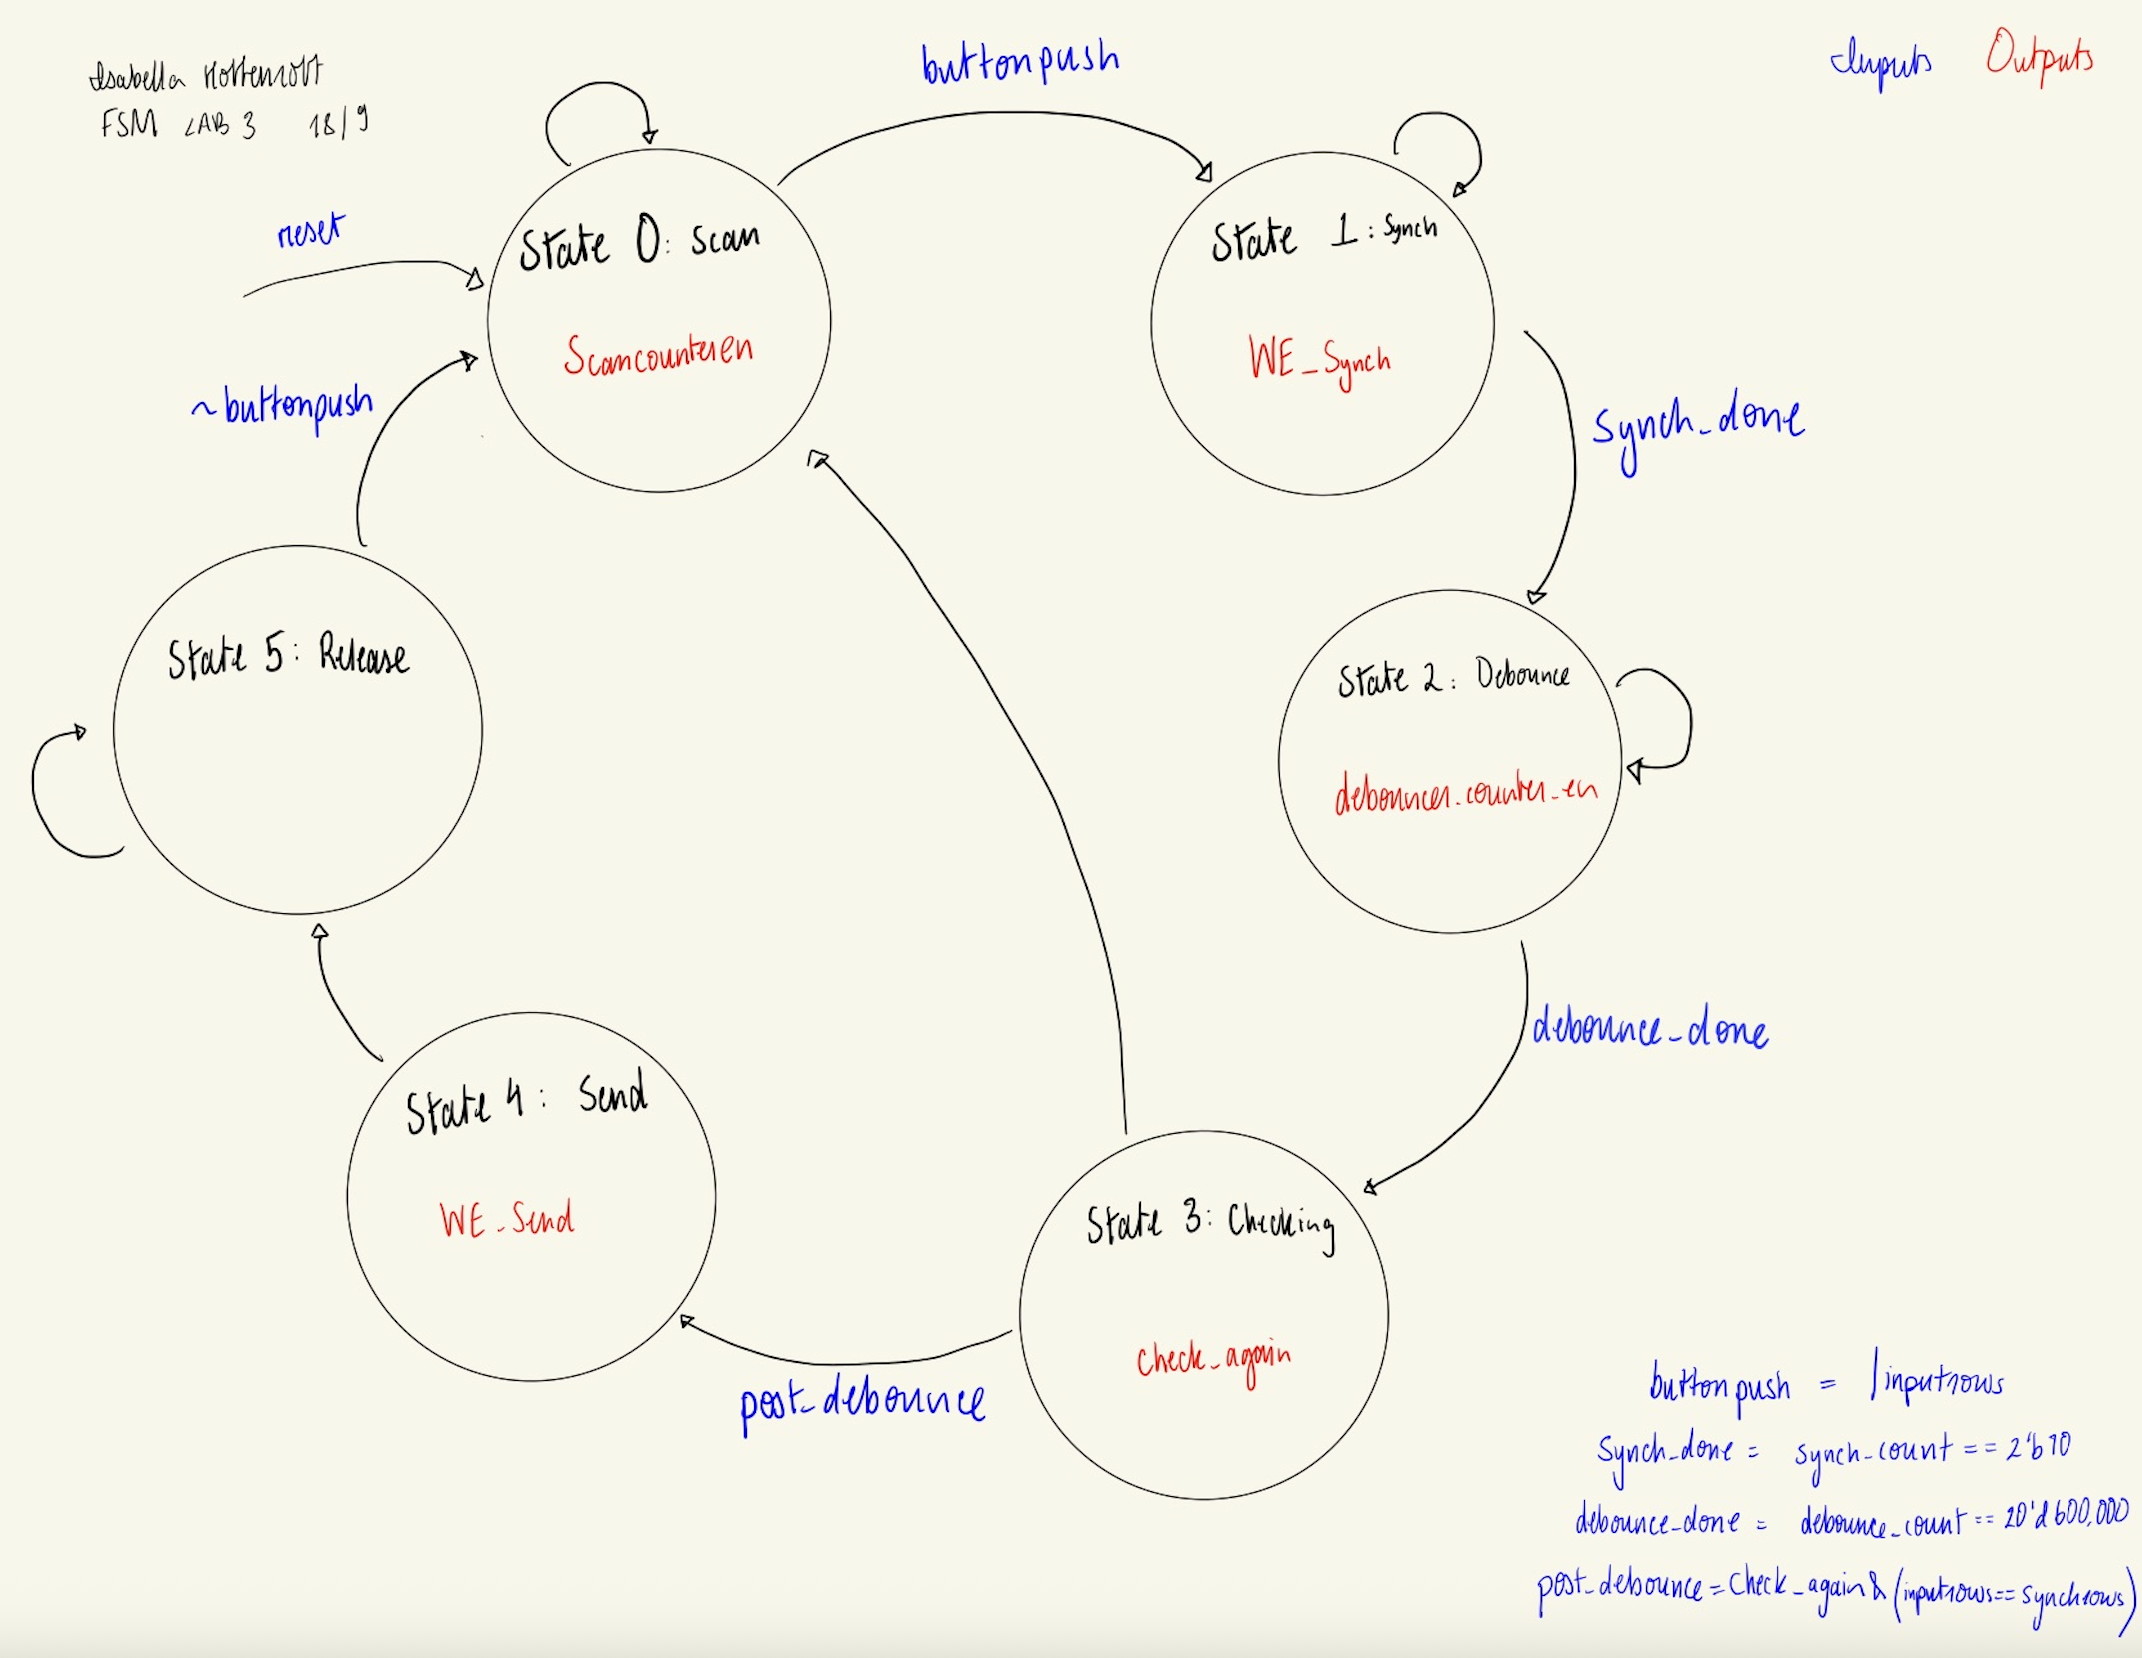 Isabella Hottenrott
FSM LAB 3 18/9
Inputs Outputs
buttonpush
reset
State 0: Scan
Scancounteren
State 1: Synch
WE_Synch
~buttonpush
synch_done
State 5: Release
State 2: Debounce
debouncer_counter_en
debounce_done
State 4: Send
WE_Send
State 3: Checking
check_again
post_debounce
buttonpush = |inputrows
Synch_done = synch_count == 2'b10
debounce_done = debounce_count == 20'd600,000
post_debounce = Check_again & (inputrows == synchrows)